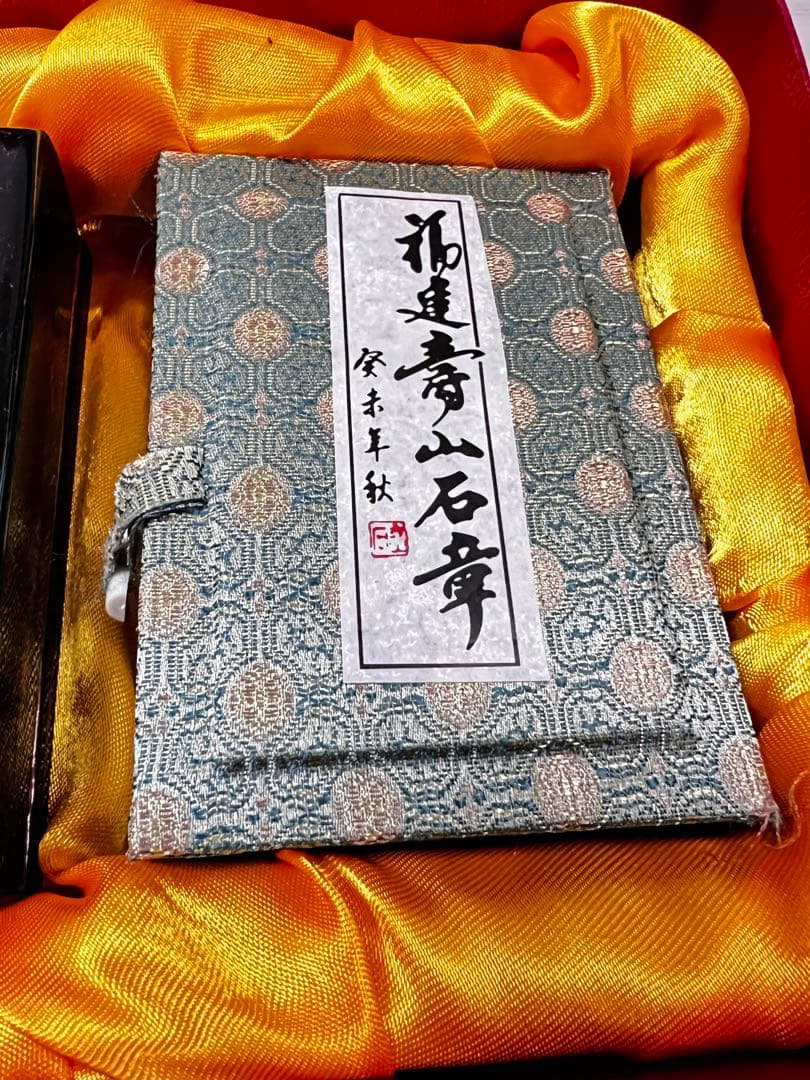 福建寿山石章
癸未年秋